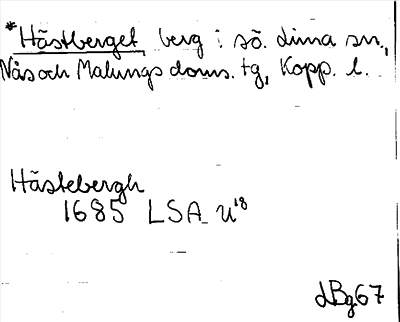 *Hästberget berg i sö. Lima sn.,
Nås och Malungs doms. tg, Kopp. l.
Hästebergh
1685 LSA U18
LBg67